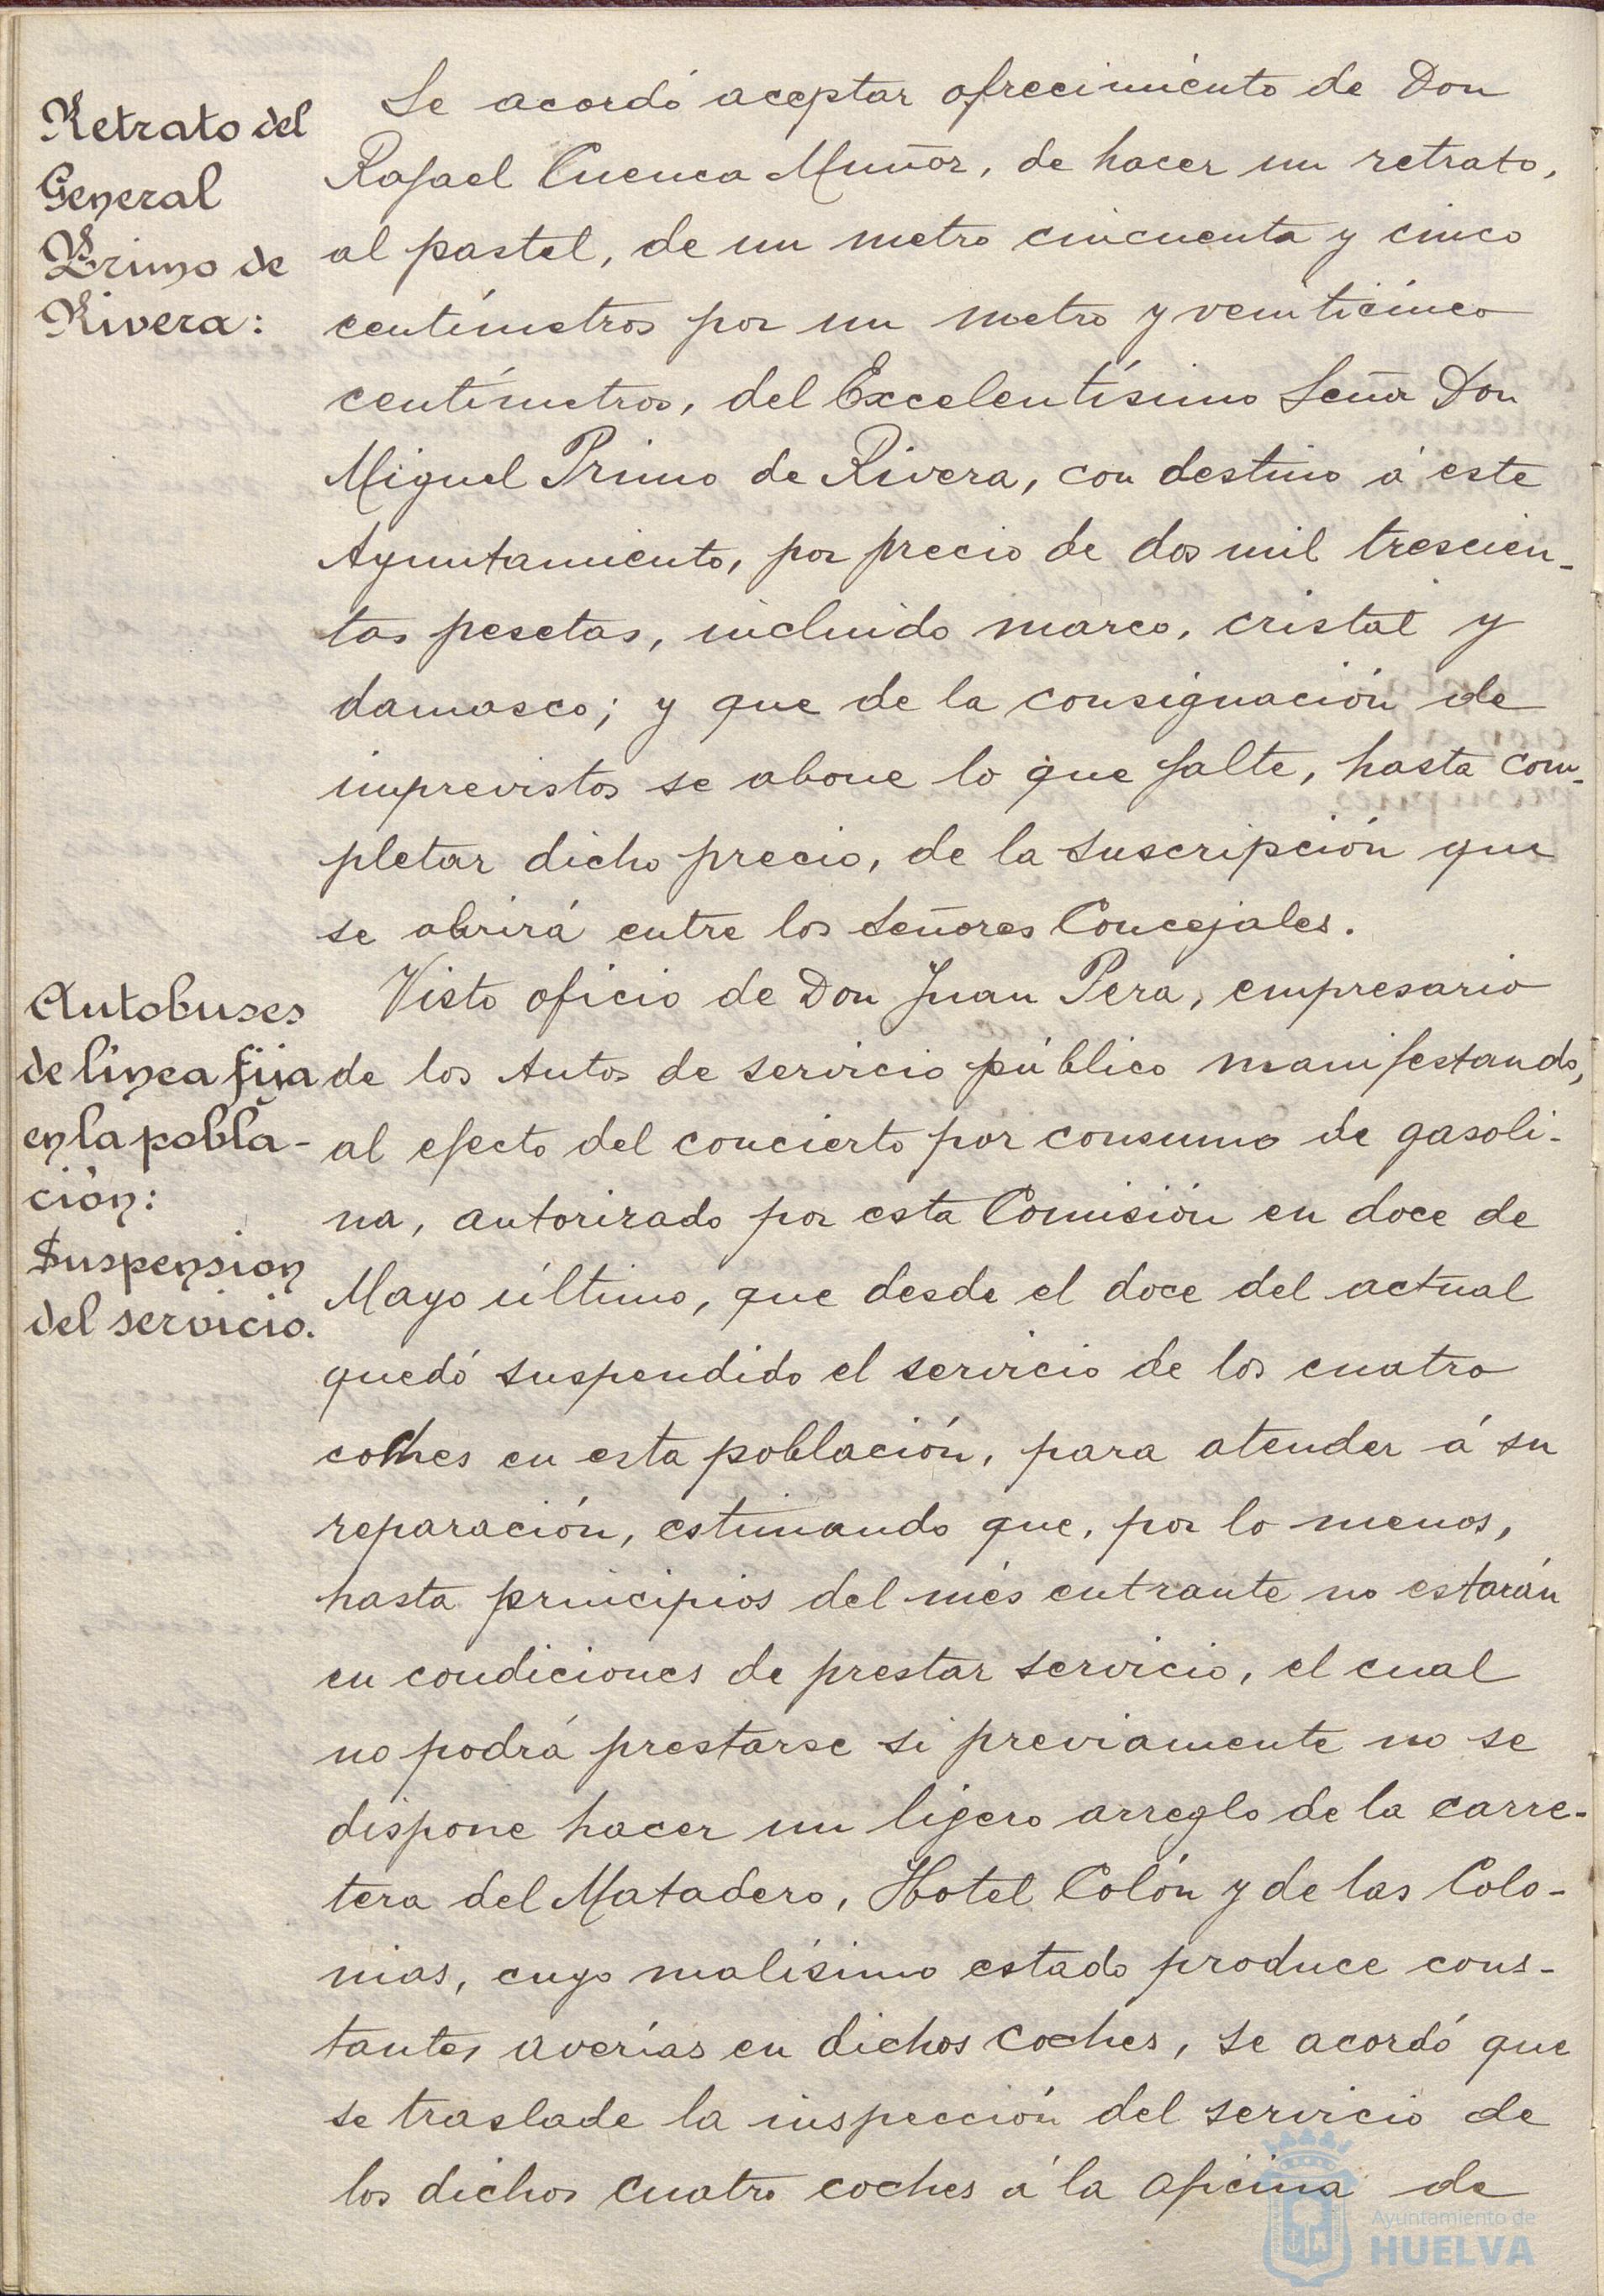 Retrato del
General
Primo de
Rivera:
Se acordó aceptar ofrecimiento de Don
Rafael Cuenca Muñoz, de hacer un retrato,
al pastel, de un metro cincuenta y cinco
centímetros por un metro y veinticinco
centímetros, del Excelentísimo Señor Don
Miguel Primo de Rivera, con destino á este
Ayuntamiento, por precio de dos mil trescien-
tas pesetas, incluido marco, cristal y
damasco; y que de la consignación de
imprevistos se abone lo que falte, hasta com-
pletar dicho precio, de la suscripción que
se abrirá entre los señores Concejales.
Autobuses
de línea fija
en la pobla-
ción:
Suspension
del servicio.
Visto oficio de Don Juan Pera, empresario
de los Autos de servicio público manifestando,
al efecto del concierto por consumo de gasoli-
na, autorizado por esta Comisión en doce de
Mayo último, que desde el doce del actual
quedó suspendido el servicio de los cuatro
coches en esta población, para atender á su
reparación, estimando que, por lo menos,
hasta principios del més entrante no estarán
en condiciones de prestar servicio, el cual
no podrá prestarse si previamente no se
dispone hacer un ligero arreglo de la carre-
tera del Matadero, Hotel Colón y de las Colo-
nias, cuyo malísimo estado produce cons-
tantes averías en dichos coches, se acordó que
se traslade la inspección del servicio de
los dichos cuatro coches á la oficina de
Ayuntamiento de
HUELVA